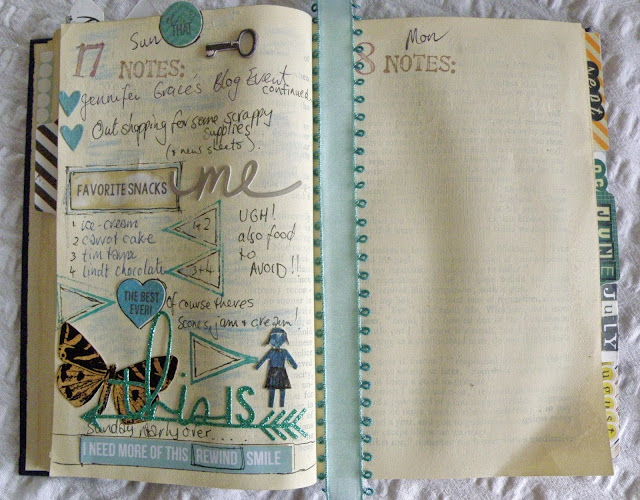 THAT
Sun
17 NOTES:
Jennifer Grace's Blog Event
continued
Out shopping for some scrappy
supplies
(+ new skirts).
FAVORITE SNACKS
me
1 ice-cream
2 carrot cake
3 tim tams
4 lindt chocolate
1+2
3+4
UGH!
also food
to
AVOID!!
THE BEST
EVER!
Of course theres
Scones, jam & cream!
this IS
Sunday nearly over.....
I NEED MORE OF THIS REWIND SMILE
Mon
8 NOTES:
JUNE
JULY